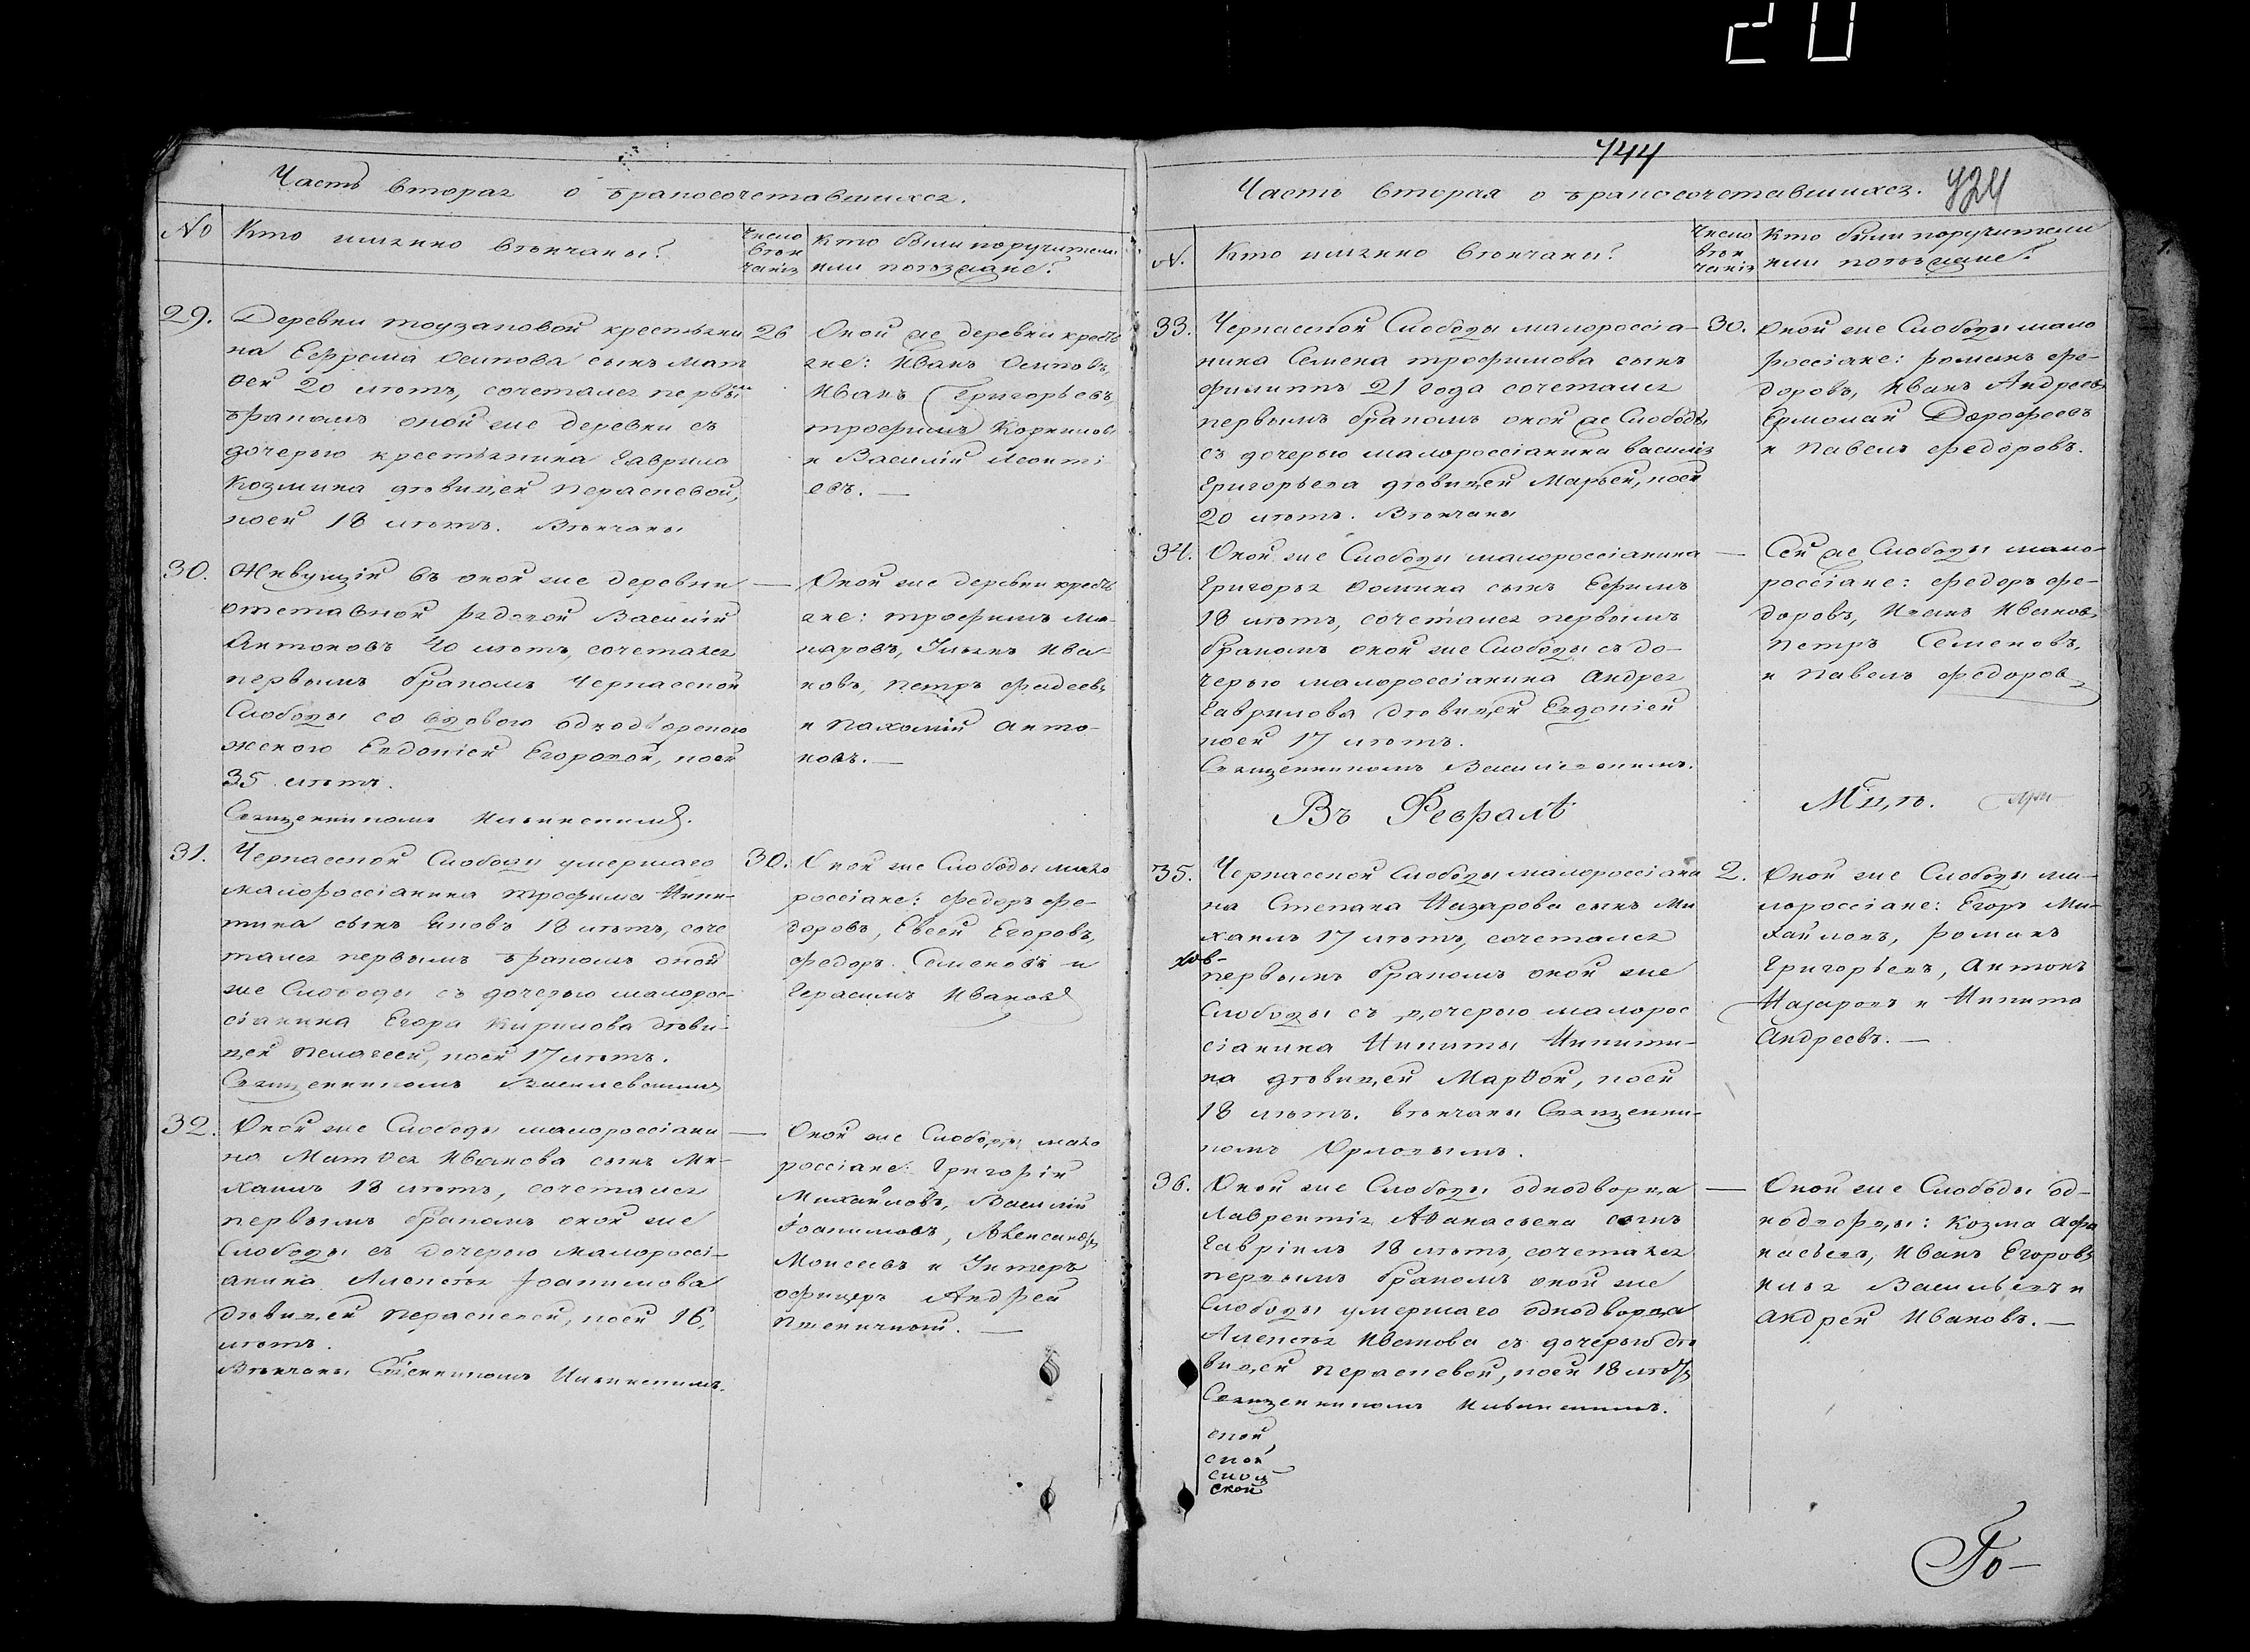 20
Часть вторая о бракосочетавшихся.
№
Кто именно венчаны?
Число
вѣн
чанія
Кто были поручители
или поѣзжане?
29.
Деревни
крестьяни
на Ефрема Осипова сынъ Мат
ѳей 20 лѣтъ, сочетался первым
бракомъ оной же деревни съ
дочерью крестьянина Гаврила
Козмина дѣвицей Параскевой,
коей 18 лѣтъ. Вѣнчаны
26
Оной же деревни кресть
яне: Иванъ Осиповъ,
Иванъ Григорьевъ,
трофимъ Корниловъ
и Василій Леонті
евъ. —
30.
Живущій въ оной же деревни
отставной рядовой Василій
Антоновъ 40 лѣтъ, сочетался
первымъ бракомъ Черкасской
Слободы со вдовою однодворческою
женкою Евдокіей Егоровой, коей
35 лѣтъ.
Священникомъ Ильинскимъ.
—
Оной же деревни кресть
яне: трофимъ Ма-
каровъ, Ульянъ Ива-
новъ, петръ Фадеевъ
и Пахомій Анто-
новъ. —
31.
Черкасской Слободы умершаго
малороссіанина трофима Ники-
тина сынъ Яковъ 18 лѣтъ, соче
тался первымъ бракомъ оной
же Слободы съ дочерью малорос-
сіанина Егора Кирилова дѣви-
цей Пелагеей, коей 17 лѣтъ.
Священникомъ Василевскимъ
30.
Оной же Слободы мало
россіане: Федоръ Фе-
доровъ, Евсей Егоровъ,
Федоръ Семеновъ и
Герасимъ Ивановъ
32.
Оной же Слободы малороссіани
на Матѳея Иванова сынъ Ми-
хаилъ 18 лѣтъ, сочетался
первымъ бракомъ оной же
Слободы съ дочерью малороссі-
анина Алексѣя Іоакимова
дѣвицей Параскевой, коей 16
лѣтъ.
Вѣнчаны Священникомъ Ильинскимъ.
—
Оной же Слободы мало
россіане: Григорій
Михайловъ, Василій
Іоакимовъ, Александръ
Моисеевъ и Унтеръ
офицеръ Андрей
Пшеничный. —
444
424
Часть вторая о бракосочетавшихся.
№.
Кто именно венчаны?
Число
вѣн
чанія
Кто были поручители
или поѣзжане?
33.
Черкасской Слободы малороссіа-
нина Семена трофимова сынъ
филиппъ 21 года сочетался
первымъ бракомъ оной же Слободы
съ дочерью малороссіанина Василія
Григорьева дѣвицей Марьей, коей
20 лѣтъ. Вѣнчаны
30.
Оной же Слободы мало
россіане: романъ Фе-
доровъ, Иванъ Андреевъ
Ермолай Дорофеевъ
и Павелъ Федоровъ.
34.
Оной же Слободы малороссіанина
Григорья Фомина сынъ Ефимъ
18 лѣтъ, сочетался первымъ
бракомъ оной же Слободы съ до-
черью малороссіанина Андрея
Гаврилова дѣвицей Евдокіей
коей 17 лѣтъ.
Священникомъ Василевскимъ.
—
Сей же Слободы мало-
россіане: Федоръ Фе-
доровъ, Иванъ Ивановъ,
Петръ Семеновъ,
и Павелъ Федоров
Въ Февралѣ
Мѣцѣ.
35.
Черкасской Слободы малороссіани
на Степана Назарова сынъ Ми
хаилъ 17 лѣтъ, сочетался
первымъ бракомъ оной же
Слободы съ дочерью малорос
сіанина Никиты Никити-
на дѣвицей Марѳой, коей
18 лѣтъ. вѣнчаны Священни-
комъ Орловымъ.
2.
Оной же Слободы ма-
лороссіане: Егоръ Ми-
хайловъ, романъ
Григорьевъ, Антонъ
Назаровъ и Никита
Андреевъ. —
36.
Оной же Слободы однодворца
Лаврентія Аѳанасьева сынъ
Гавріилъ 18 лѣтъ, сочетался
первымъ бракомъ оной же
Слободы умершаго однодворца
Алексѣя Иванова съ дочерью дѣ
вицей Параскевой, коей 18 лѣтъ
Священникомъ Ильинскимъ.
—
Оной же Слободы од-
нодворцы: Козма Афа
насьевъ, Иванъ Егоровъ
Илья Васильевъ и
Андрей Ивановъ. —
ской
ской
ской
ской
Го-